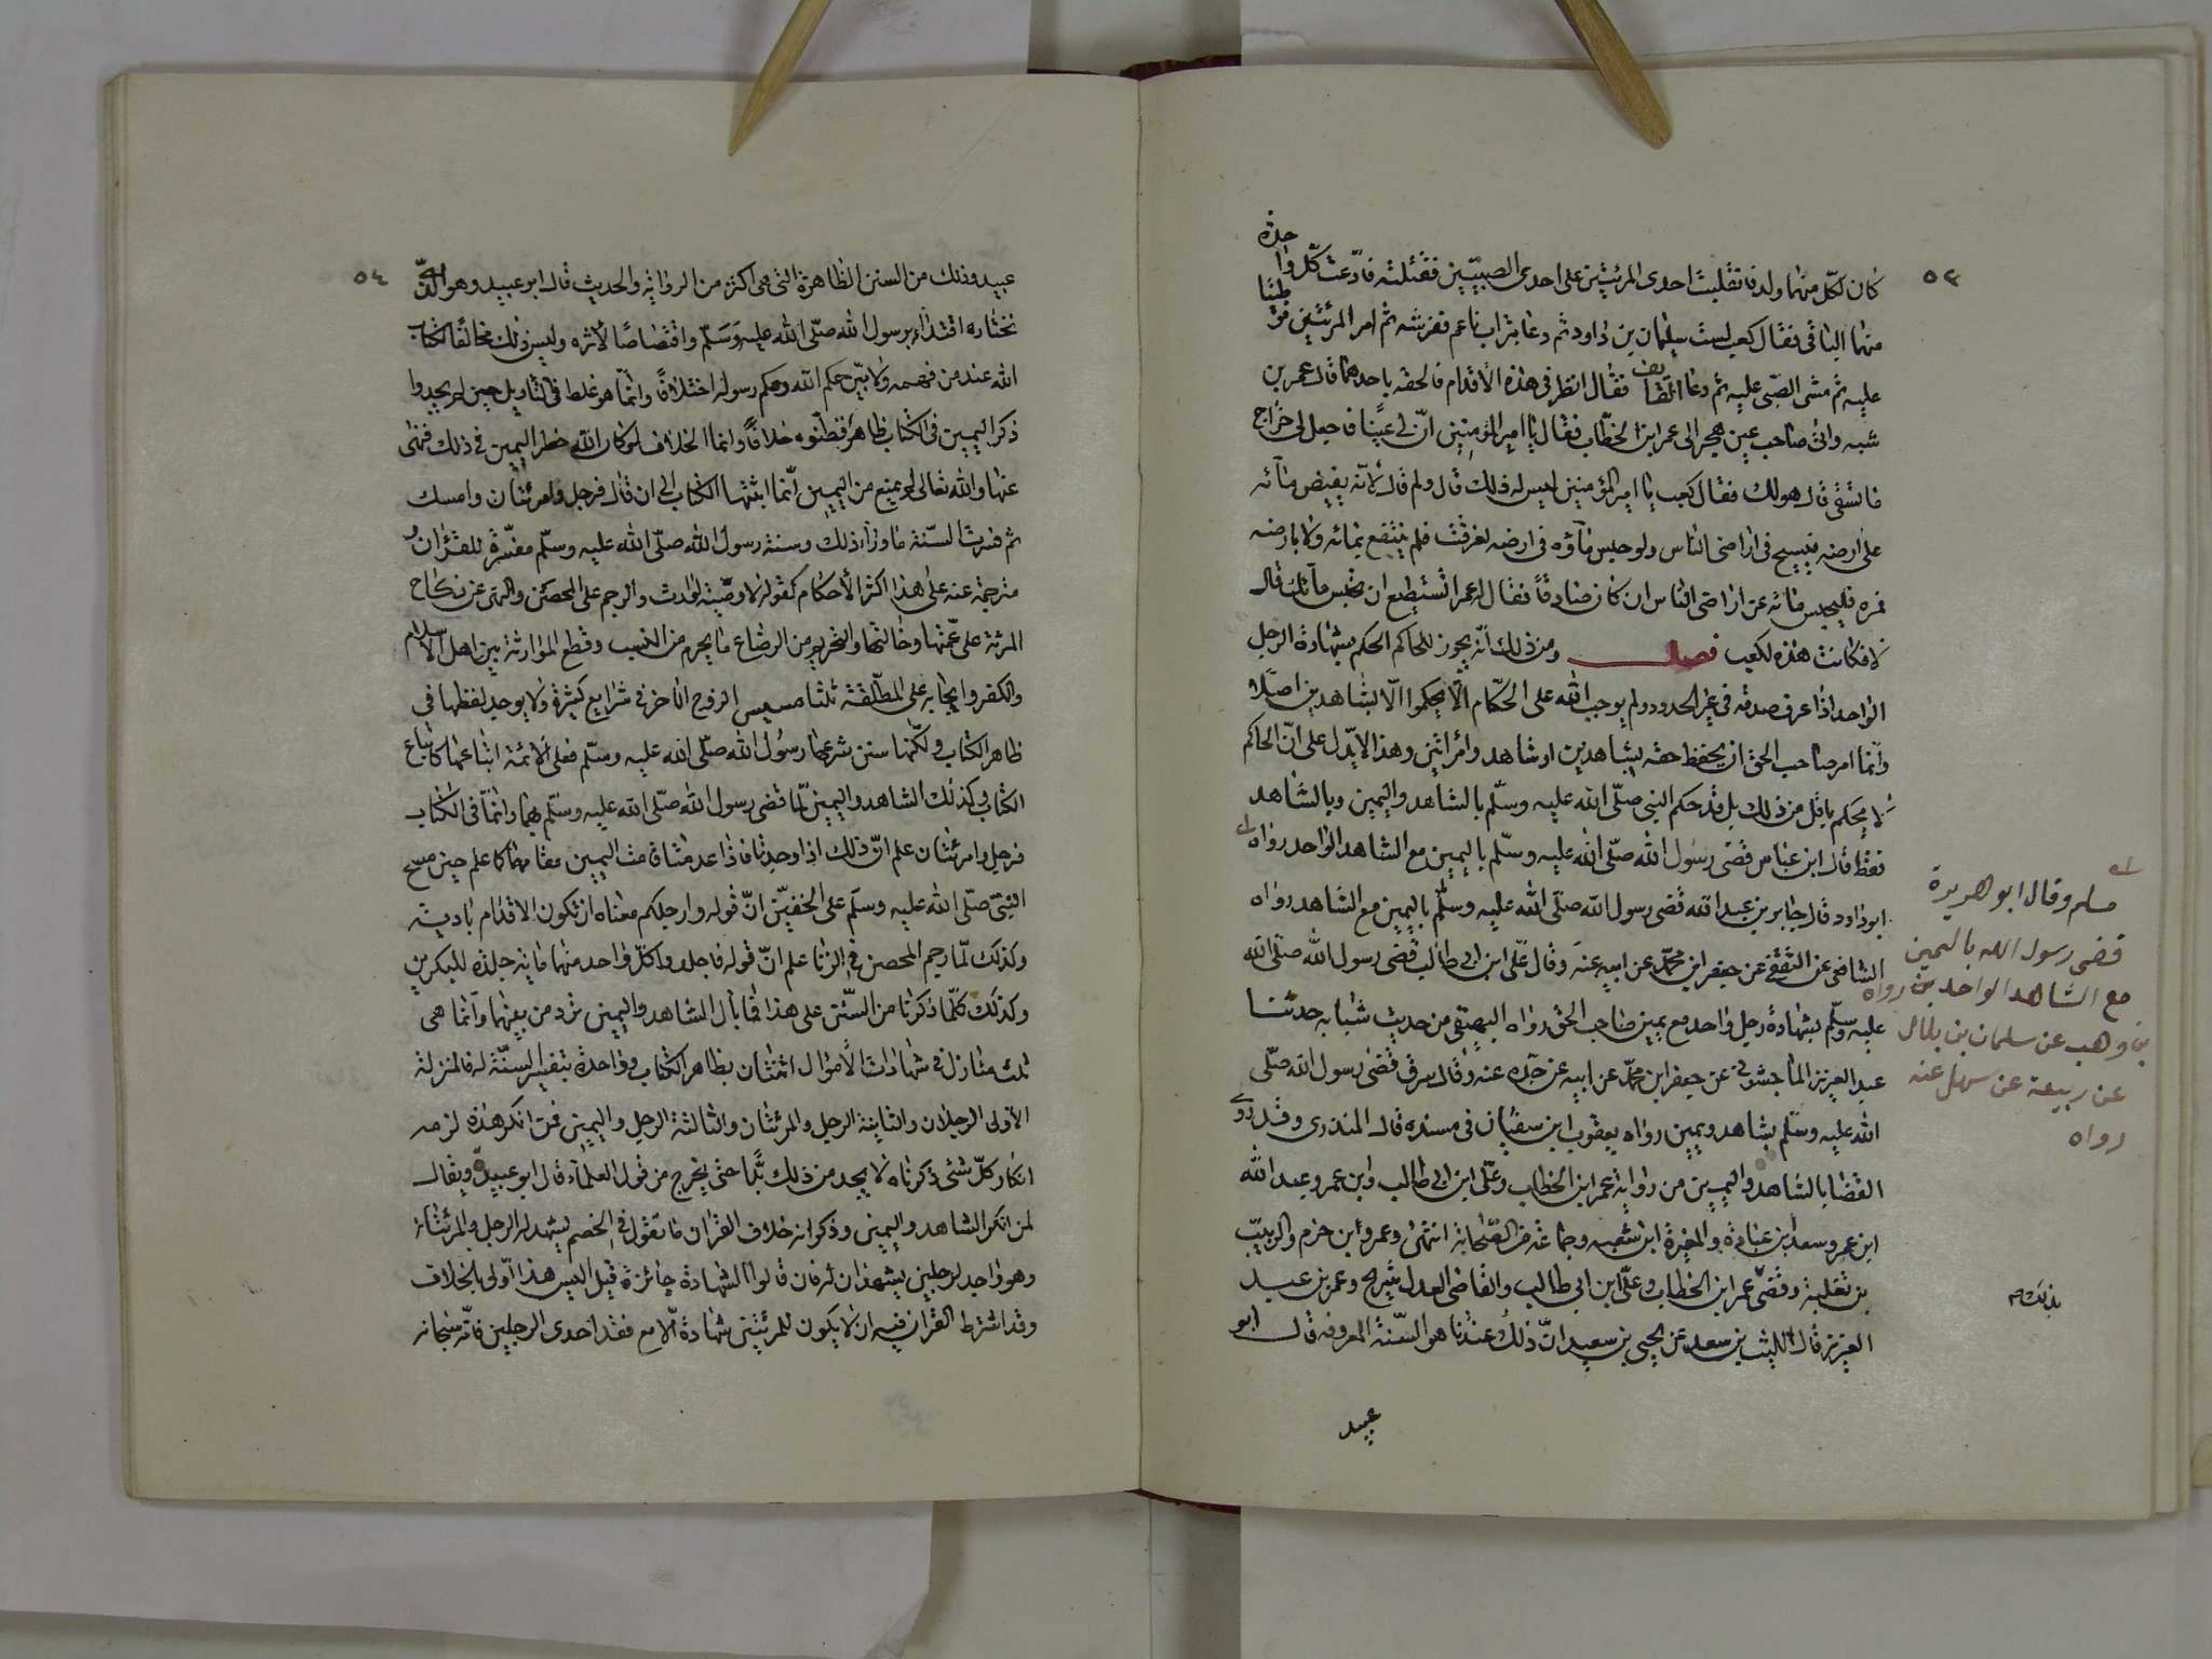 ٥٣
كان لكلّ منهما ولد فانقلبت احدى المرئتين على احدى الصبيّين فقتلته فادّعت كلّ واحدة
منهما الباقى فقال كعب لست سليمان بن داود ثم دعا بتراب ناعم ففرشه ثم امر المرئتين فوطئتا
عليه ثم مشى الصّبى عليه ثم دعا القايف فقال انظر فى هذه الاقدام فالحقه باحدهما قال عمر بن
شبه واتى صاحب عين هجر الى عمر ابن الخطّاب فقال يا امير المؤمنين انّ لى عينًا فاجعل لى خراج
ما تسقى قال هو لك فقال كعب يا امير المؤمنين ليس له ذلك قال ولم قال لانّه يفيض مائه
على ارضه فيسيح فى اراضى الناس ولو حبس ماؤه فى ارضه لغرقت فلم ينتفع بمائه ولا بارضه
فمره فليحبس مائه عن اراضى الناس ان كان صادقًا فقال له عمر اتستطيع ان تحبس مائك قال
لا فكانت هذه لكعب فصل ومن ذلك انّه يجوز للحاكم الحكم بشهادة الرجل
الواحد اذا عرف صدقه فى غير الحدود ولم يوجب الله على الحكّام الّا يحكموا الّا بشاهدين اصلًا
وانّما امر صاحب الحق ان يحفظ حقه بشاهدين او شاهد وامراتين وهذا لا يدّل على انّ الحاكم
لا يحكم باقل من ذلك بل قد حكم النبى صلّى الله عليه وسلّم بالشاهد واليمين وبالشاهد
فقط قال ابن عباس قضى رسول الله صلّى الله عليه وسلّم باليمين مع الشاهد الواحد رواه
ابو داود قال جابر بن عبد الله قضى رسول الله صلّى الله عليه وسلّم باليمين مع الشاهد رواه
الشافعى عن الثقفى عن جعفر ابن محمّد عن ابيه عنه وقال علّى ابن ابى طالب قضى رسول الله صلّى الله
عليه وسلّم بشهادة رجل واحد مع يمين صاحب الحق رواه البيهقى من حديث شبابه حدثنا
عبد العزيز الماجشونى عن جعفر ابن محمّد عن ابيه عن جدّه عنه وقال سرق قضى رسول الله صلّى
الله عليه وسلّم بشاهد ويمين رواه يعقوب ابن سفيان فى مسنده قال المنذرى وقد روى
القضا بالشاهد واليمين من رواية عمر ابن الخطاب وعلّى ابن ابى طالب وابن عمر وعبد الله
ابن عمرو وسعد بن عبادة والمغيرة ابن شعبه وجماعة من الصّحابة انتهى وعمرو ابن حزم والزبيب
بن ثعلبة وقضى عمر ابن الخطاب وعلّى ابن ابى طالب والقاضى العدل شريح وعمر بن عبد
العزيز قال الليث بن سعد عن يحيى بن سعيد انّ ذلك عندنا هو السّنة المعروفه قال ابو
عبيد
مسلم وقال ابو هريرة
قضى رسول الله باليمين
مع الشاهد الواحد رواه
بن وهب عن سليمان بن بلال
عن ربيعة عن سهل عنه
رواه
بذلك صح
٥٤
عبيد وذلك من السنن الظاهرة التى هى اكثر من الرواية والحديث قال ابو عبيد وهو الذّى
نختاره اقتداء برسول الله صلّى الله عليه وسلّم واقتصاصًا لاثره وليس ذلك مخالفًا لكتاب
الله عند من فهمه ولا بين حكم الله وحكم رسوله اختلافًا وانّما هو غلط فى التاويل حين لم يجدوا
ذكر اليمين فى الكتاب ظاهرًا فظنّوه خلافًا وانما الخلاف لو كان الله حظر اليمين فى ذلك فنهى
عنها والله تعالى لم يمنع من اليمين انّما اثبتها الكتاب الى ان قال فرجل وامرئتان وامسك
ثم فسّرت السّنة ما وراء ذلك وسنة رسول الله صلّى الله عليه وسلّم مفسّرة للقرٰان و
مترجمة عنه على هذا اكثر الاحكام كقوله لا وصيّة لوارث والرجم على المحصن والنهى عن نكاح
المرئة على عمّتها وخالتها والتحريم من الرضاع ما يحرم من النسب وقطع الموارثة بين اهل الاسلام
والكفر وايجابه على المطلّقة ثلثا مسيس الزوج الاخر فى شرايع كثيرة ولا يوجد لفظها فى
ظاهر الكتاب ولكنّها سنن شرعها رسول الله صلّى الله عليه وسلّم فعلى الائمة اتباعها كاتباع
الكتاب وكذلك الشاهد واليمين لمّا قضى رسول الله صلّى الله عليه وسلّم بهما وانّما فى الكتاب
فرجل وامرئتان علم انّ ذلك اذا وجدتا فاذا عدمتا قامت اليمين مقامهما كما علم حين مسح
النبىّ صلّى الله عليه وسلّم على الخفيّن انّ قوله وارجلكم معناه ان تكون الاقدام بادية
وكذلك لمّا رجم المحصن فى الزنا علم انّ قوله فاجلدوا كلّ واحد منهما مائة جلدة للبكرين
وكذلك كلّما ذكرنا من السّنن على هذا فما بال الشاهد واليمين ترّد من بينها وانّما هى
ثلث منازل فى شهادات الاموال اثنتان بظاهر الكتاب وواحدة بتفسير السنّة له فالمنزلة
الاولى الرجلان والثانية الرجل والمرئتان والثالثة الرجل واليمين فمن انكر هذه لزمه
انكار كلّ شئى ذكرناه لا يجد من ذلك بدًّا حتى يخرج من قول العلماء قال ابو عبيد ويقال
لمن انكر الشاهد واليمين وذكر انه خلاف القرٰان ما تقول فى الخصم يشهد له الرجل والمرئتان
وهو واجد لرجلين يشهدان له فان قالوا الشهادة جائزة قيل اليس هذا اولى بالخلاف
وقد اشترط القرٰان فيه ان لا يكون للمرئتين شهادة الّا مع فقد احدى الرجلين فانّه سبحانه